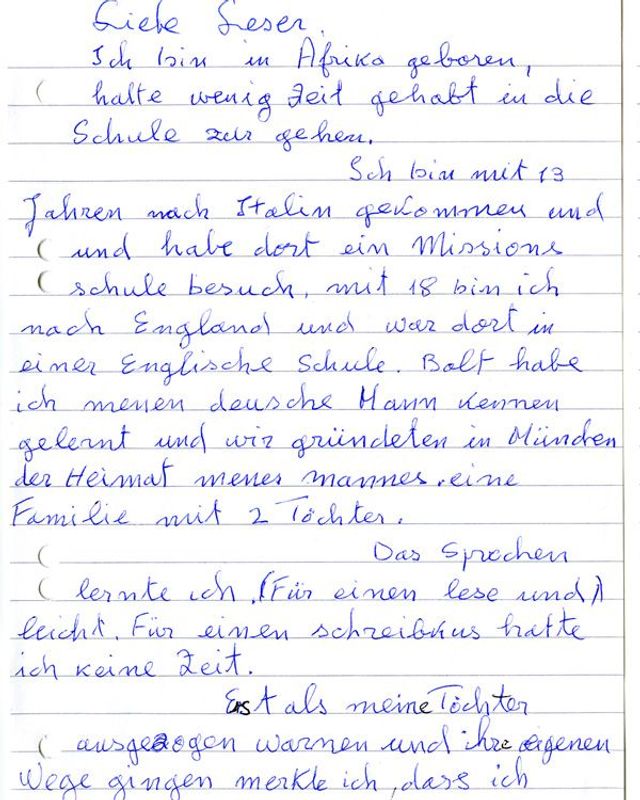 Liebe Leser,
Ich bin in Afrika geboren,
hatte wenig Zeit gehabt in die
Schule zur gehen.
Ich bin mit 13
Jahren nach Italin gekommen und
( und habe dort ein Missions
( schule besuch, mit 18 bin ich
nach England und war dort in
einer Englische Schule. Balt habe
ich menen deusche Mann kennen
gelernt und wir gründeten in München
der Heimat menes mannes. eine
Familie mit 2 Töchter.
( Das Sprachen
( lernte ich (Für einen lese und)
leicht. Für einen schreibkus hatte
ich keine Zeit.
Erst als meine Töchter
( ausgezogen warnen und ihre eigenen
Wege gingen merkte ich, dass ich